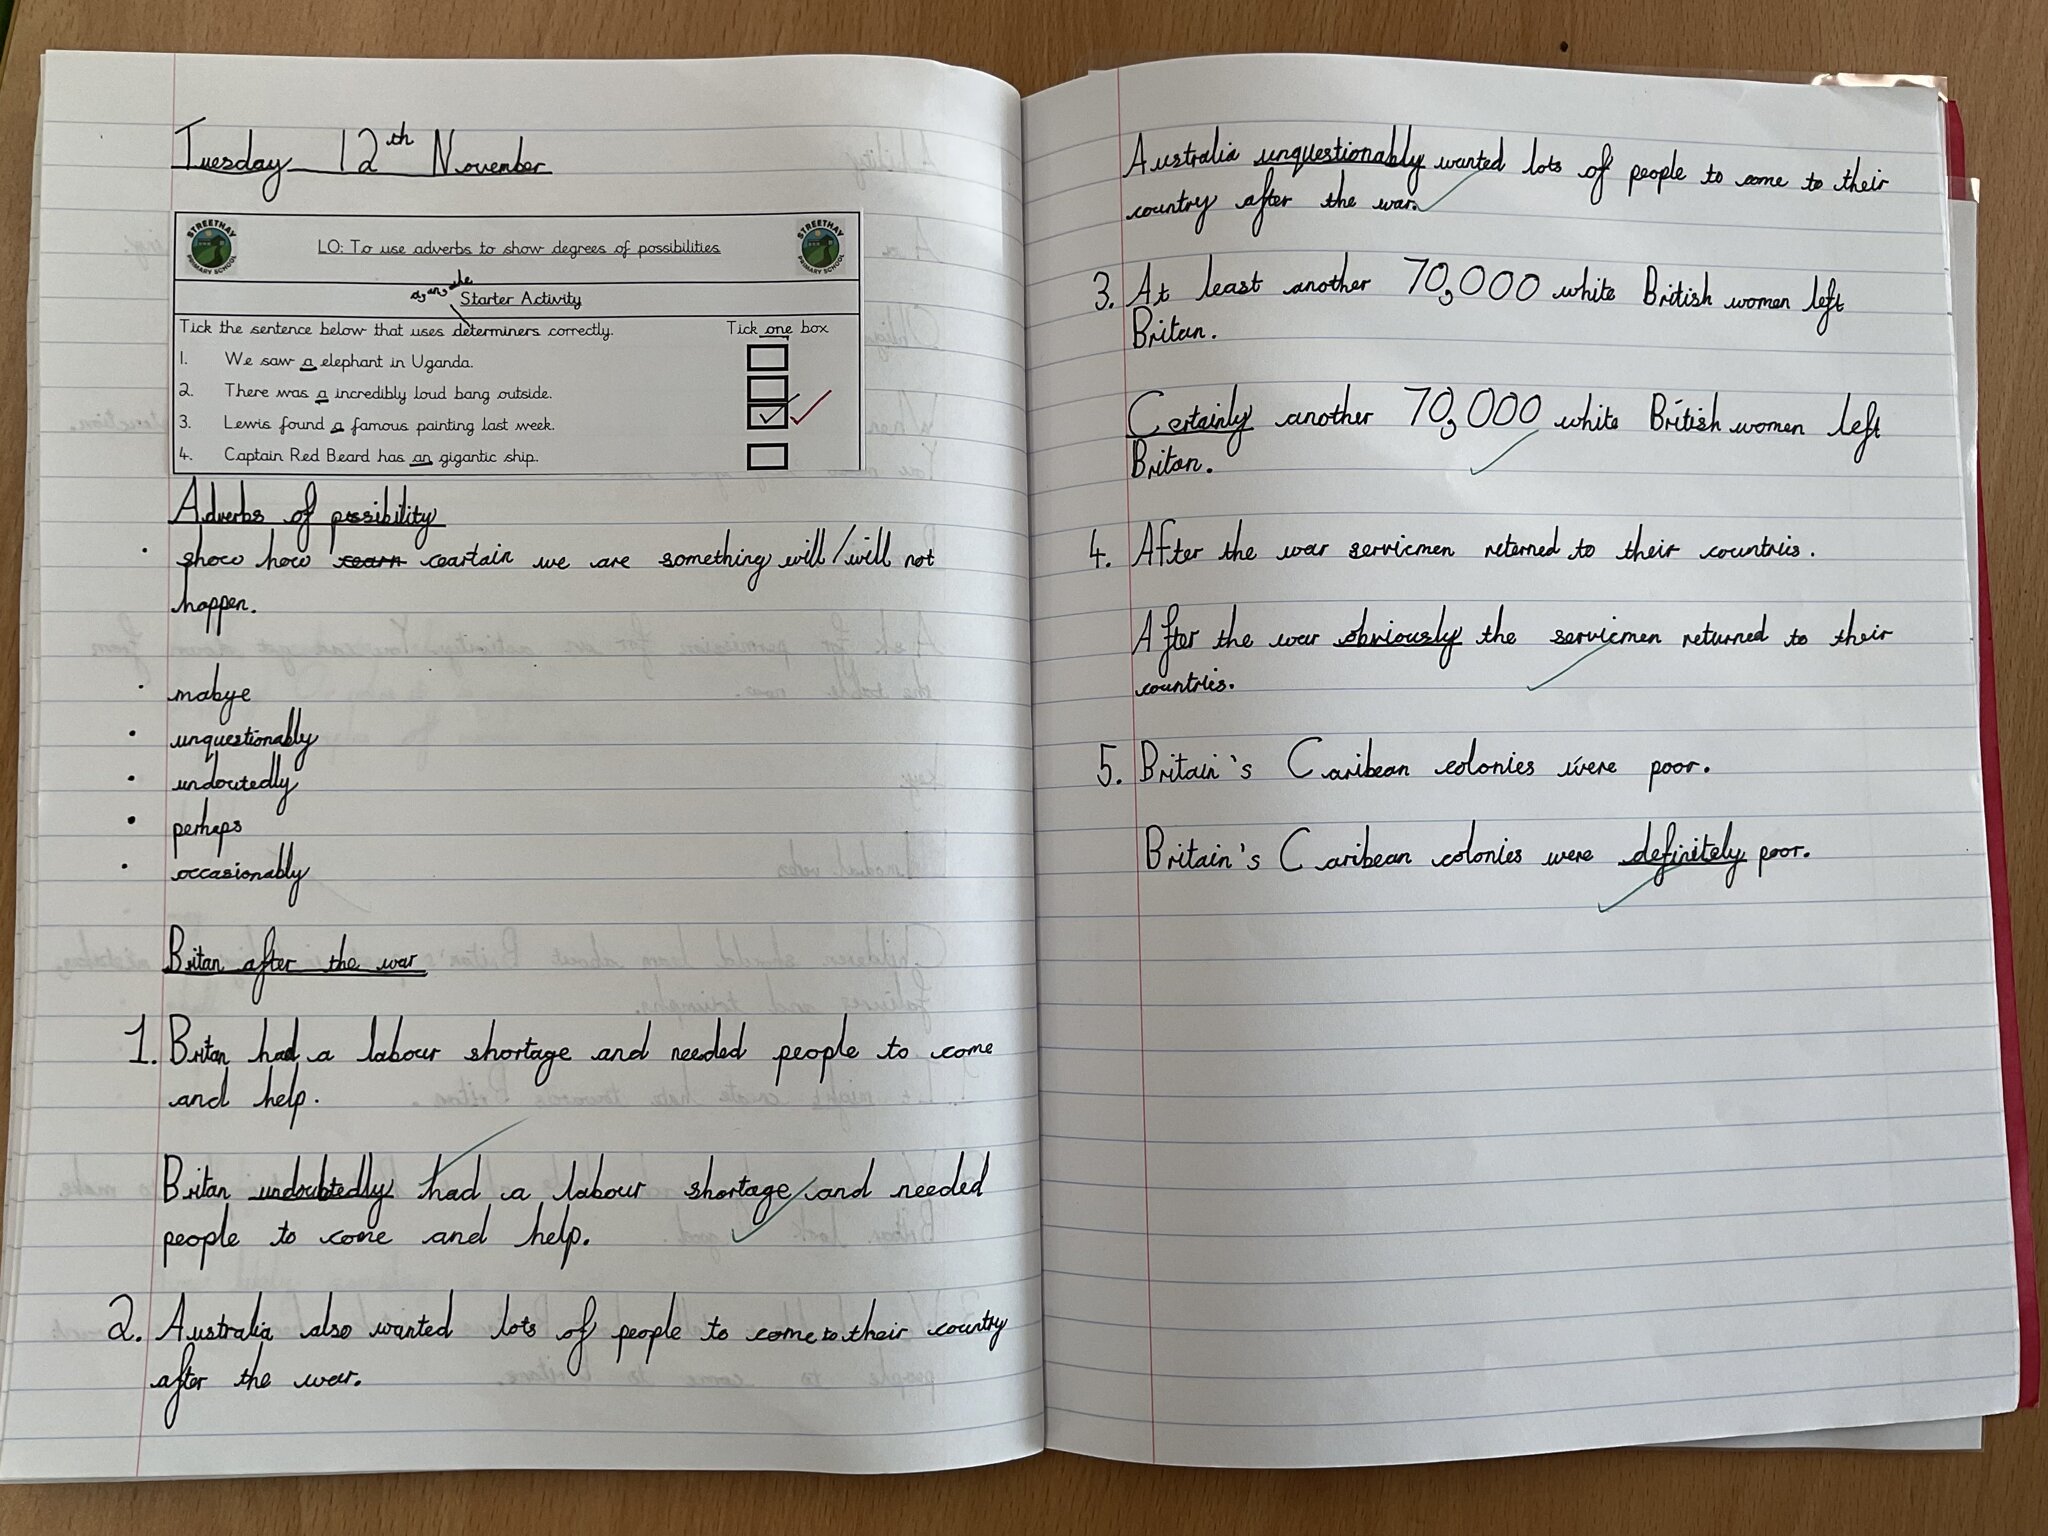 Tuesday 12th November
STREETHAY PRIMARY SCHOOL
LO: To use adverbs to show degrees of possibilities
STREETHAY PRIMARY SCHOOL
a, an, the
Starter Activity
Tick the sentence below that uses determiners correctly. Tick one box
1. We saw a elephant in Uganda.
2. There was a incredibly loud bang outside.
3. Lewis found a famous painting last week.
4. Captain Red Beard has an gigantic ship.
Adverbs of possibility
· show how ceartain we are something will/will not
happen.
· mabye
· unquestionably
· undoutedly
· perhaps
· occasionably
Britan after the war
1. Britan had a labour shortage and needed people to come
and help.
Britan undoubtedly had a labour shortage and needed
people to come and help.
2. Australia also wanted lots of people to come to their country
after the war.
Australia unquestionably wanted lots of people to come to their
country after the war.
3. At least another 70,000 white British women left
Britan.
Certainly another 70,000 white British women left
Britan.
4. After the war servicmen returned to their countries.
After the war obviously the servicmen returned to their
countries.
5. Britain's Caribean colonies were poor.
Britain's Caribean colonies were definitely poor.